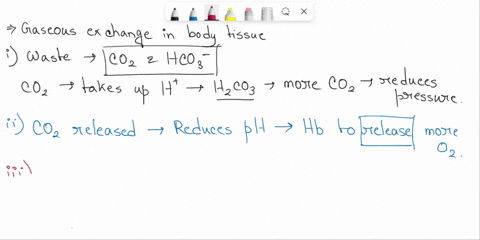 ⇒ Gaseous exchange in body tissue
i) Waste → CO₂ & HCO₃⁻
CO₂ → takes up H⁺ → H₂CO₃ → more CO₂ → reduces pressure.
ii) CO₂ released → Reduces pH → Hb to release more O₂.
iii)